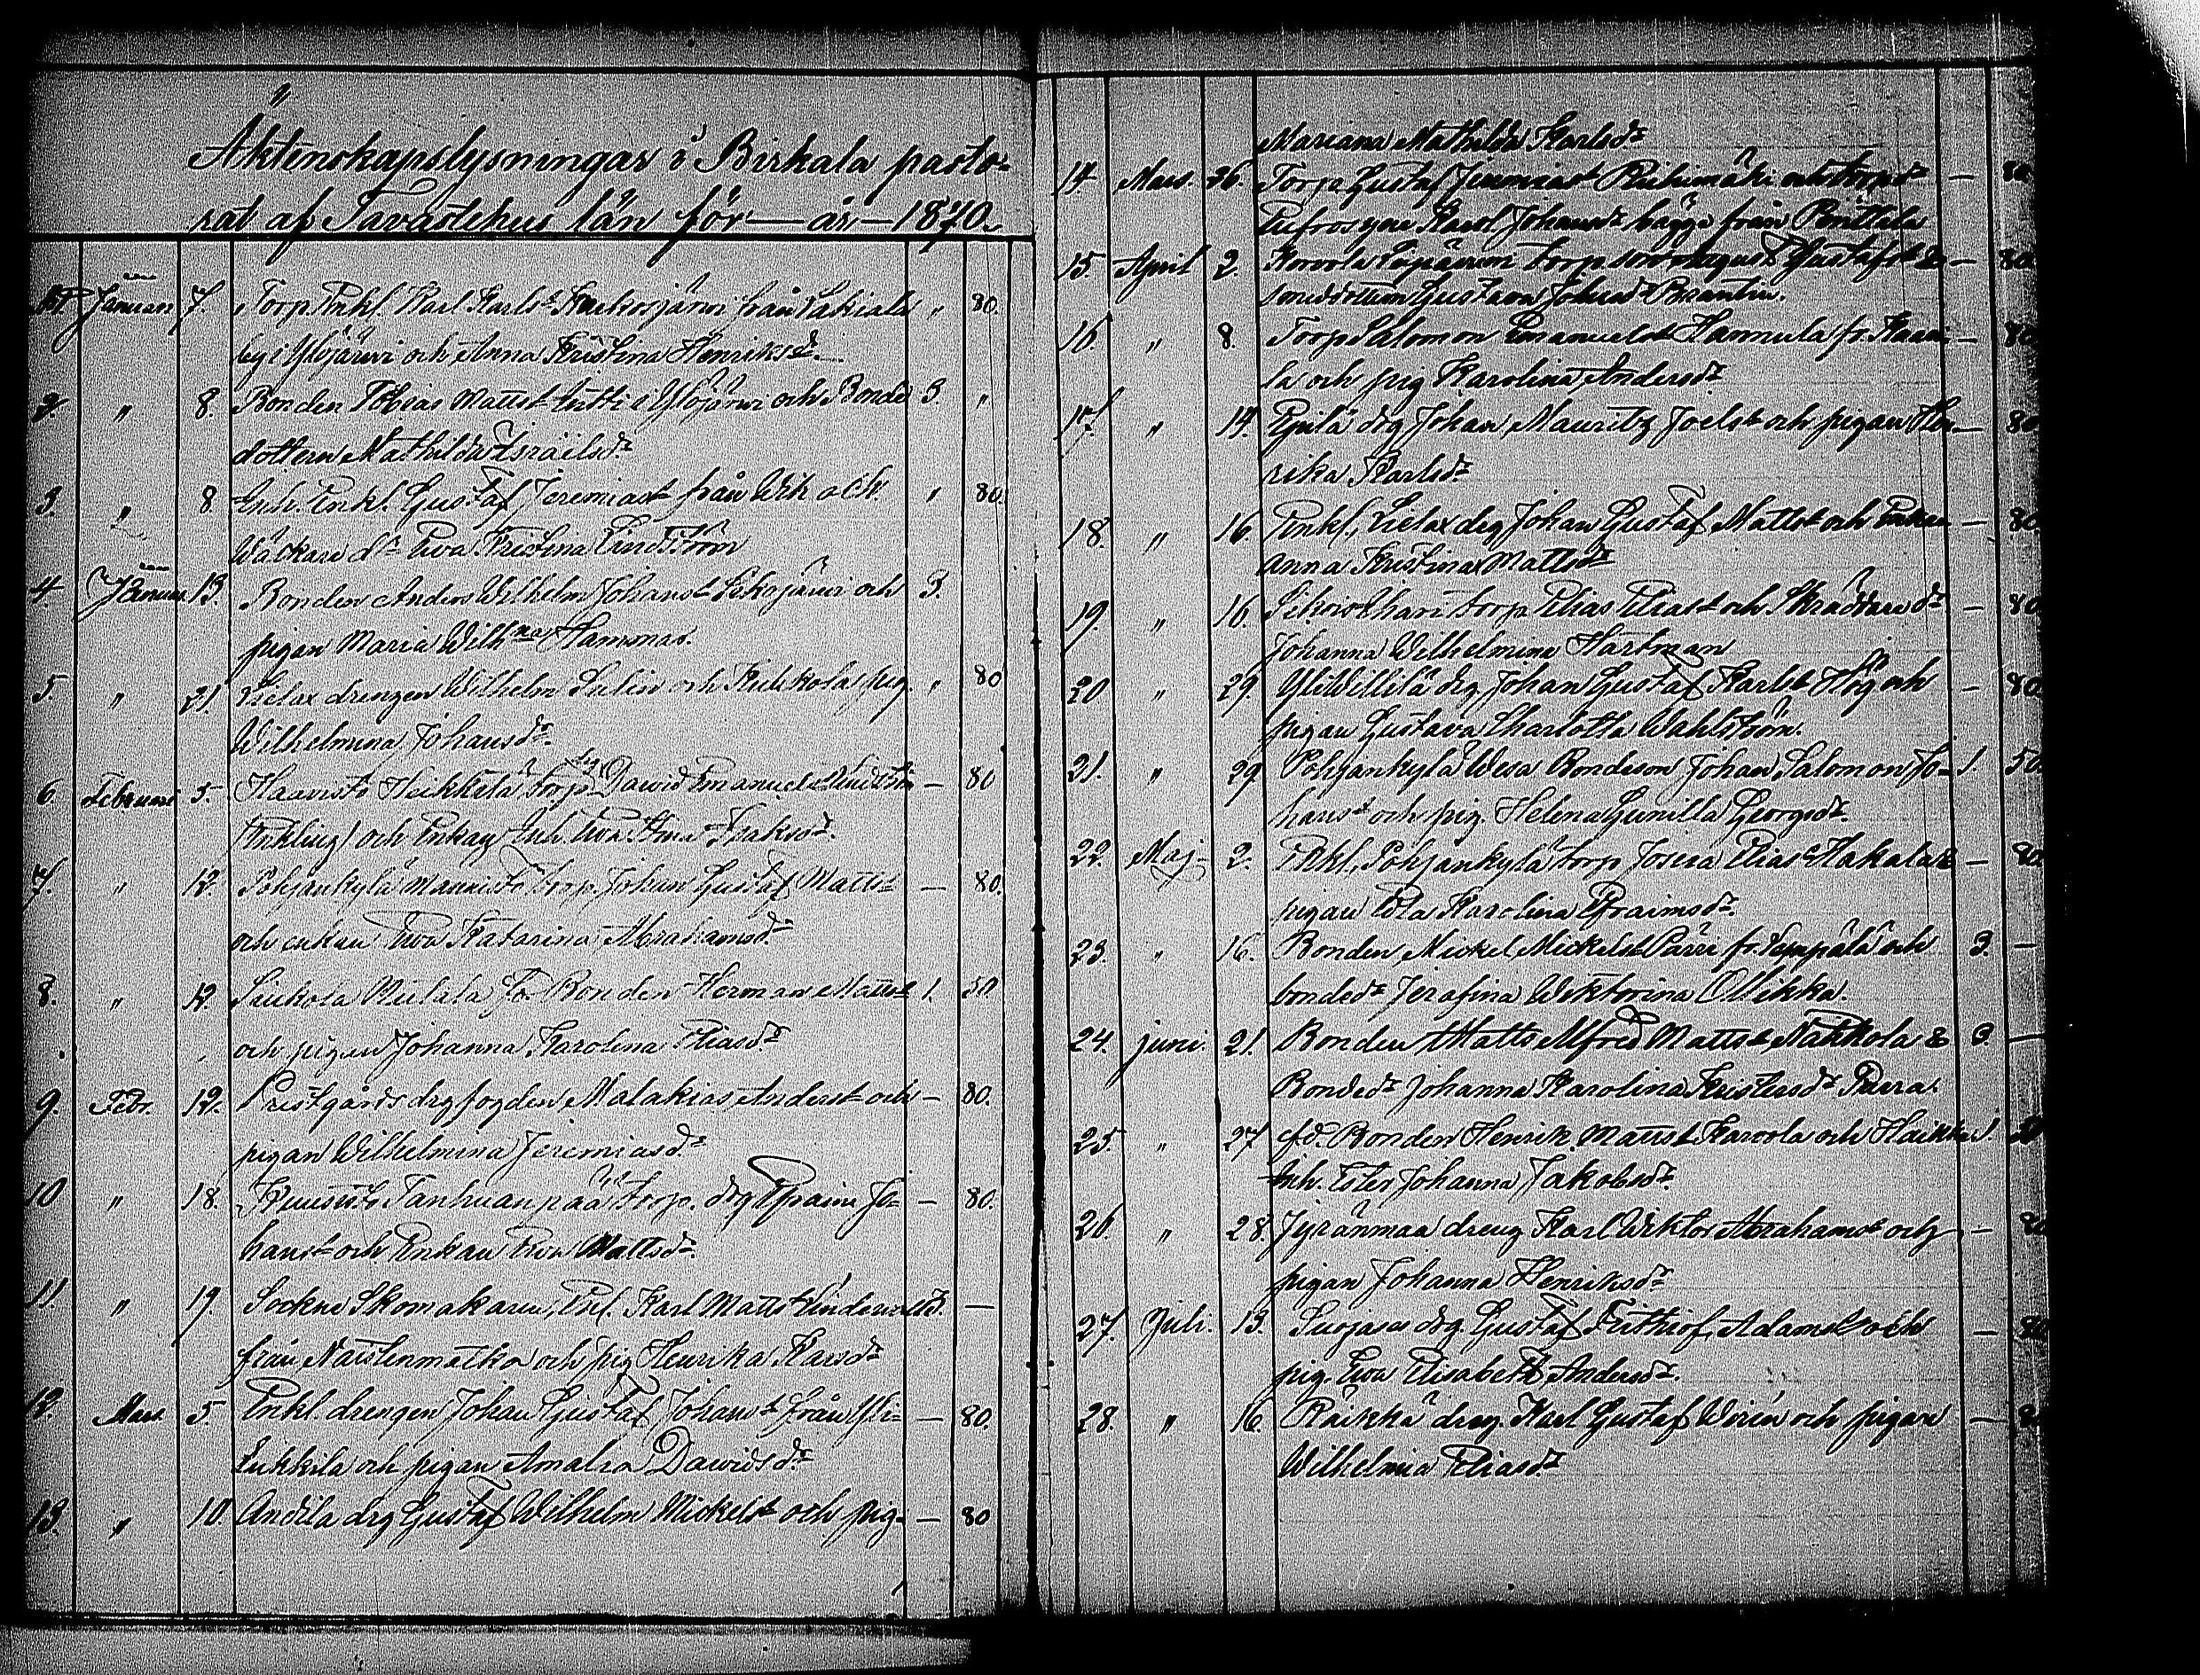 Äktenskapslysningar i Birkala pasto-
rat af Tavastehus län för — år — 1870.
1. Januari 7. Torp. Enkl. Karl Karlst. från Sakiala " 80.
by i Ylöjärvi och Anna Kristina Henriksdr.
2 " 8. Bonden Tobias Mattst. Antti i Ylöjärvi och Bonde 3 "
dottern Mathilda Israëlsdr.
3. " 8 Inh. Enkl. Gustaf Jeremiast. från Wik och " 80.
Wäckare dr. Ewa Kristina Lindström
4. Januari 13. Bonden Anders Wilhelm Johanst. och 3.
pigan Maria Wilhna Hamsnas.
5. " 21. Kielax drengen Wilhelm Salin och Kulkola pig. " 80
Wilhelmina Johansdr.
6. Februari 5. Haavisto Heikkilä torp. drg David Emanuel — 80
(Enkling) och Enkan Inh. Ewa Stina Isaksdr.
7. " 12 Pohjankylä Mannisto torp. Johan Gustaf Mattst. — 80.
och enkan Ewa Katarina Abrahamsdr.
8. " 12. Siukola fd. Bonden Herman Mattst. 1. 50.
och pigan Johanna Karolina Eliasdr.
9. Febr. 12. Prestgårds drgfogden Malakias Anderst. och — 80.
pigan Wilhelmina Jeremiasdr.
10 " 18. Kuusisto Tanhuanpää torp. drg Efraim Jo- — 80.
hanst. och Enkan Ewa Mattsdr.
11. " 19. Sockne Skomakaren, Enkl. Karl Mattst. —
från Naistenmatka och pig. Henrika Karsdr.
12. Mars 5 Enkl. drengen Johan Gustaf Johanst. från Yli- — 80.
Liukkila och pigan Amalia Davidsdr.
13. " 10. Anöila drg Gustaf Wilhelm Mickelst. och pig. — 80
Mariana Mathilda Karlsdr.
14 Mars. 26. Torp. Gustaf Jeremiast. Riihimäki och torpdr — 80.
Eufrosyne Karol. Johansdr. bägge från Penttilä
15. April 2. Korvola torp son August Gustafst. & — 80.
Gustava Johansdr. Brantin.
16. " 8. Torp Salomon Emanuelst. Hannula fr. Kaari- — 80
la och pig Karolina Andersdr.
17. " 14. Pyilä drg Johan Mauritz Joelst. och pigan Hen- — 80
rika Karlsdr.
18. " 16 Enkl., Kielax drg Johan Gustaf Mattst. och Enkan — 80.
Anna Kristina Mattsdr.
19. " 16. torp. Elias Eliast. och Skräddare dr. — 80
Johanna Wilhelmina Hartman
20 " 29 YliWillilä drg. Johan Gustaf Karlst. Hög och — 80.
pigan Gustava Charlotta Wahlström.
21. " 29. Pohjankylä Wesa Bondeson Johan Salomon Jo- 1. 50.
hanst. och pig. Helena Gunilla Georgsdr.
22. Maj 2. Enkl., Pohjankylä torp Josua Eliast. Hakala & — 80.
pigan Eda Karolina Efraimsdr.
23. " 16. Bonden Mickel Mickelst. Pärri fr. Lempälä och 3. —
bondedr. Serafina Wiktorina Ollikka.
24. juni. 21. Bonden Matts Alfred Mattst. Nahkola & 3. —
Bondedr. Johanna Karolina Kristersdr. Parra.
25. " 27 fd. Bonden Henrik Mattst. Karvola och 1. 50
Inh. Ester Johanna Jakobsdr.
26. " 28. Jyränmaa dreng Karl Wiktor Abrahamst. och — 80
pigan Johanna Henriksdr.
27. Juli. 13. Suojasa drg. Gustaf Frithiof Adamst. och — 80
pig. Ewa Elisabeth Andersdr.
28. " 16. Räikkä dreng. Karl Gustaf Wirén och pigan — 80
Wilhelmia Eliasdr.